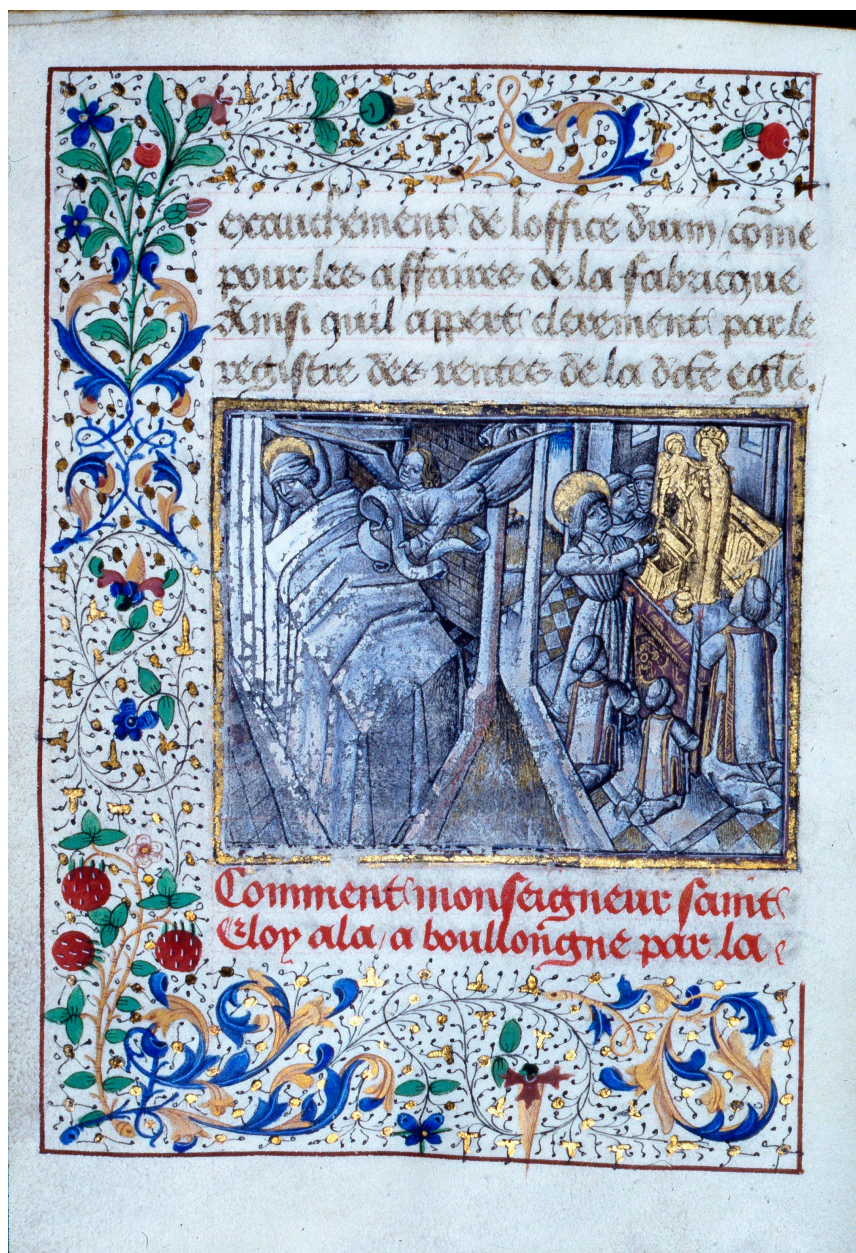 exauchement de loffice diuin / cōme
pour les affaires de la fabricque
Ainsi quil appert clerement par le
registre des rentes de la dc̄te egl̄e.
Comment monseigneur saint
Eloy ala / a boullongne par la